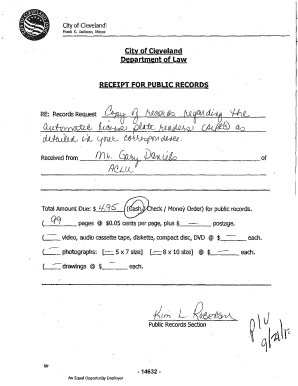 City of Cleveland
Frank G. Jackson, Mayor
City of Cleveland
Department of Law
RECEIPT FOR PUBLIC RECORDS
RE: Records Request Copy of records regarding the
automated license plate readers (ALPRS) as
detailed in your correspondence.
Received from Mr. Gary Daniels of
ACLU
Total Amount Due: $ 4.95 (Cash / Check / Money Order) for public records.
( 99 pages @ $0.05 cents per page, plus $ — postage.
( — video, audio cassette tape, diskette, compact disc, DVD @ $ — each.
( — photographs: [— 5 x 7 size] [— 8 x 10 size] @ $ — each.
( — drawings @ $ — each.
Kim L Roberson
Public Records Section
P/U
- 14632 -
An Equal Opportunity Employer